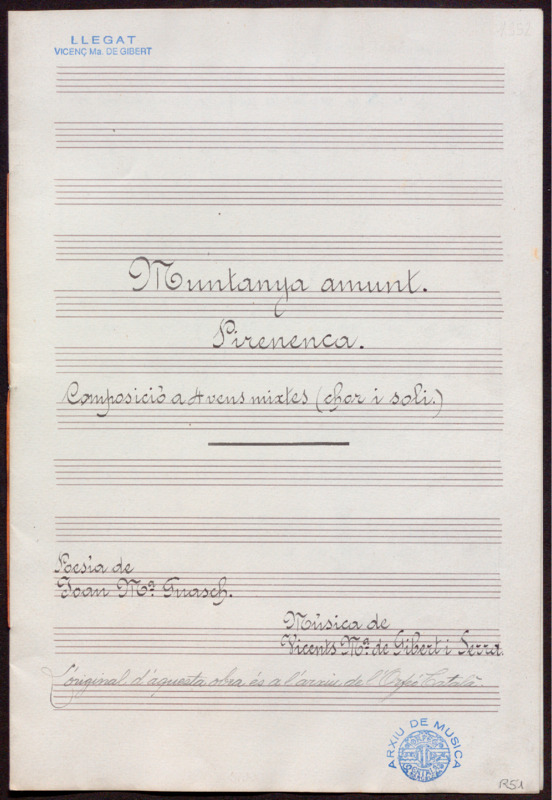 LLEGAT
VICENÇ Ma. DE GIBERT
1352
Muntanya amunt.
Pirenenca.
Composició a 4 veus mixtes (chor i soli.)
Poesia de
Joan Mª Guasch.
Música de
Vicents Mª de Gibert i Serra.
L'original d'aquesta obra és a l'arxiu de l'Orfeó Català.
ARXIU DE MUSICA
R51